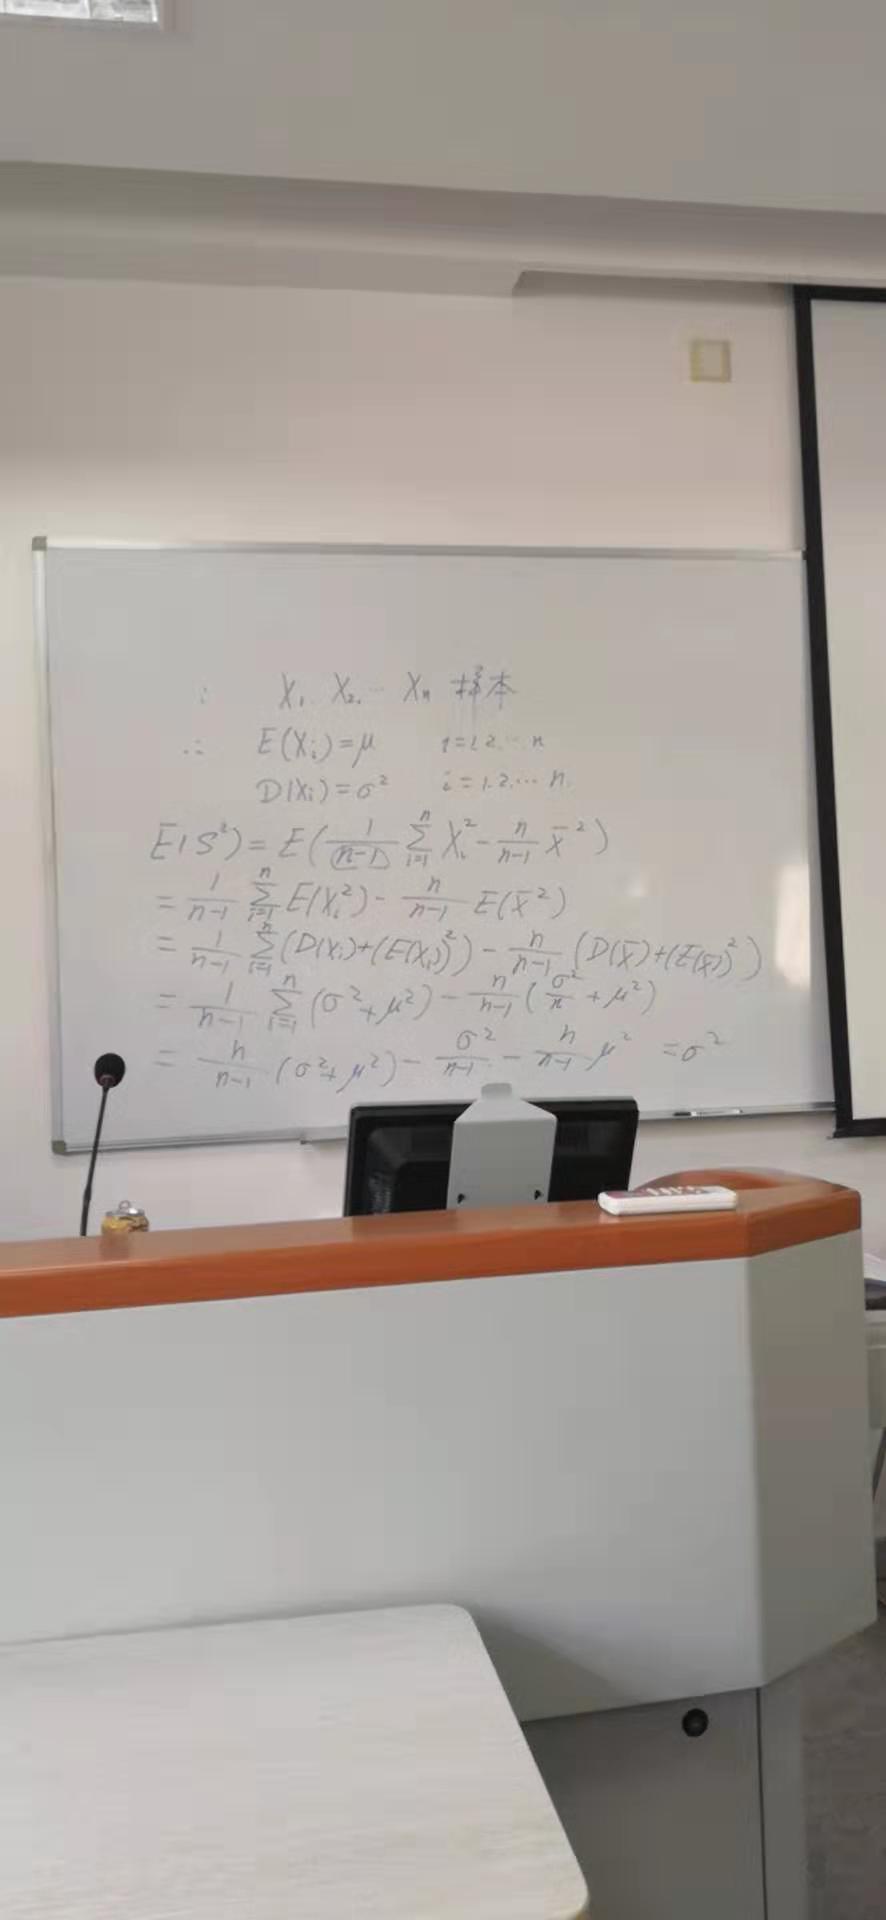 ∵ X₁. X₂. ⋯ Xₙ 样本
∴ E(Xᵢ)=μ i=1.2.⋯n
D(Xᵢ)=σ² i=1.2.⋯n.
E(S²)=E(\frac{1}{n-1}\sum_{i=1}^{n}Xᵢ²-\frac{n}{n-1}X̄²)
=\frac{1}{n-1}\sum_{i=1}^{n}E(Xᵢ²)-\frac{n}{n-1}E(X̄²)
=\frac{1}{n-1}\sum_{i=1}^{n}(D(Xᵢ)+(E(Xᵢ))²)-\frac{n}{n-1}(D(X̄)+(E(X̄))²)
=\frac{1}{n-1}\sum_{i=1}^{n}(σ²+μ²)-\frac{n}{n-1}(\frac{σ²}{n}+μ²)
=\frac{n}{n-1}(σ²+μ²)-\frac{σ²}{n-1}-\frac{n}{n-1}μ²=σ²